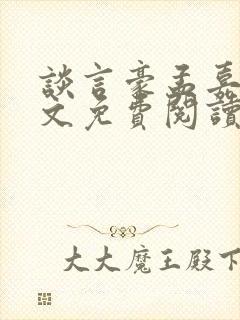 談言豪孟嘉
文免費閱讀
大大魔王殿下